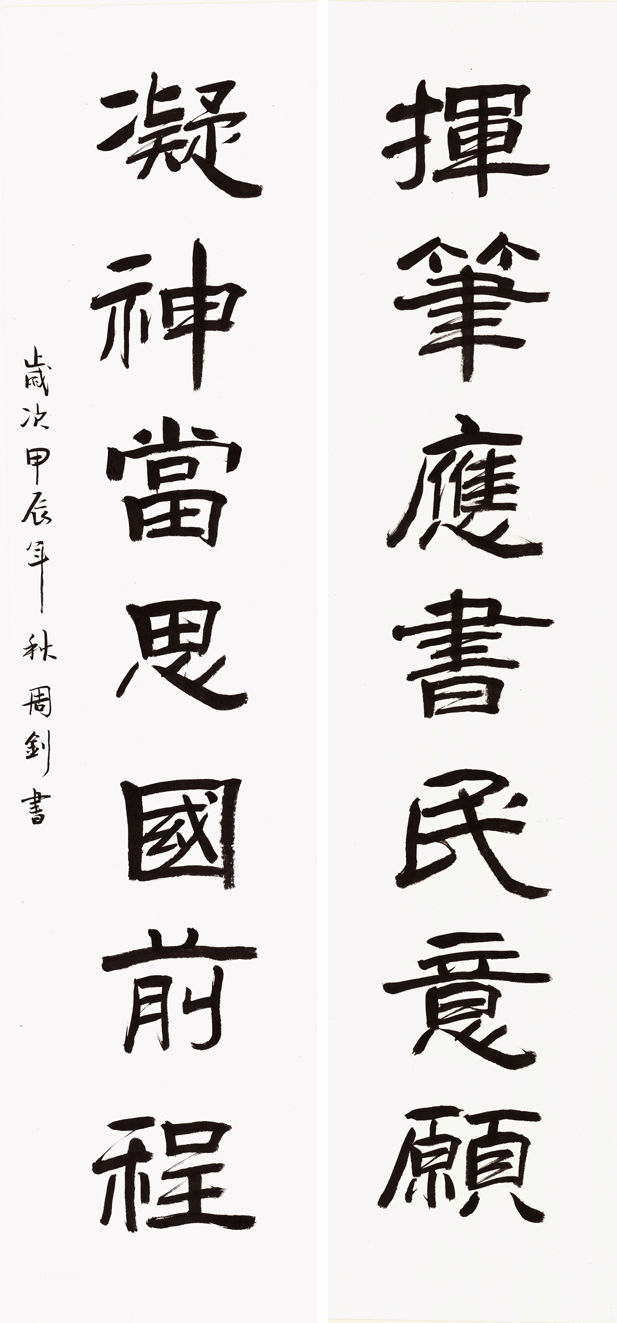 揮筆應書民意願
凝神當思國前程
歲次甲辰年秋周釗書